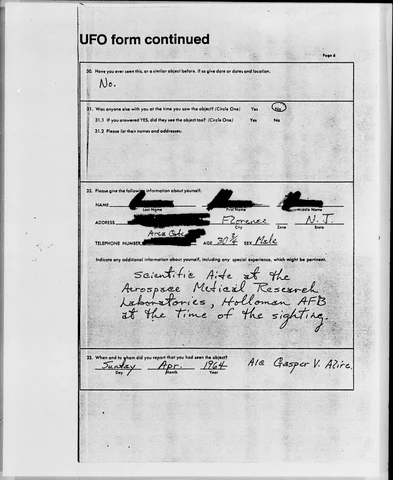 UFO form continued
Page 6
30. Have you ever seen this, or a similar object before. If so give date or dates and location.
No.
31. Was anyone else with you at the time you saw the object? (Circle One) Yes No
31.1 If you answered YES, did they see the object too? (Circle One) Yes No
31.2 Please list their names and addresses:
32. Please give the following information about yourself:
NAME
Last Name First Name Middle Name
ADDRESS Florence N.J.
City Zone State
Area Code
TELEPHONE NUMBER AGE 30 3/4 SEX Male
Indicate any additional information about yourself, including any special experience, which might be pertinent.
Scientific Aide at the
Aerospace Medical Research
Laboratories, Holloman AFB
at the time of the sighting.
33. When and to whom did you report that you had seen the object?
Sunday Apr. 1964 A1c Gasper V. Alire.
Day Month Year